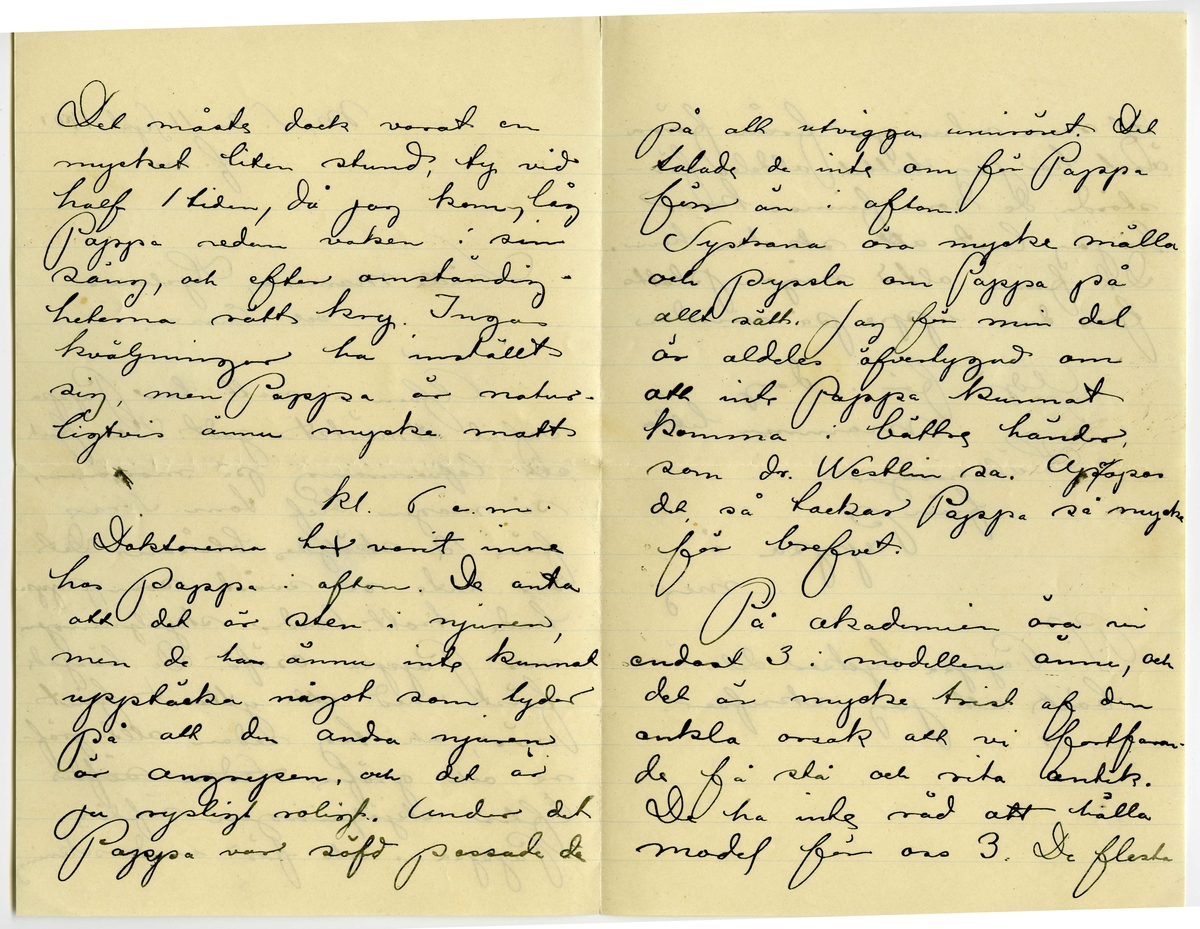 Det måste dock varat en
mycket liten stund, ty vid
half 1 tiden, då jag kom, låg
Pappa redan vaken i sin
säng, och efter omständig-
heterna rätt kry. Inga
kväljningar ha inställt
sig, men Pappa är natur-
ligtvis ännu mycke matt
kl. 6 e.m.
Doktorerna ha varit inne
hos Pappa i afton. De anta
att det är sten i njuren,
men de ha ännu inte kunnat
upptäcka något som tyder
på att den andra njuren
är angripen, och det är
ju rysligt roligt. Under det
Pappa var söfd passade de
på att utvigga urinröret. Det
talade de inte om för Pappa
förr än i afton.
Systrana ära mycke snälla
och pyssla om Pappa på
allt sätt. Jag för min del
är aldeles öfvertygad om
att inte Pappa kunnat
komma i bättre händer,
som dr. Westlin sa. Apropos
det, så tackar Pappa så mycke
för brefvet.
På akademien ära vi
endast 3 i modellen ännu, och
det är mycke trist af den
enkla orsak att vi fortfaran-
de få stå och rita antik.
De ha inte råd att hålla
model för oss 3. De flesta